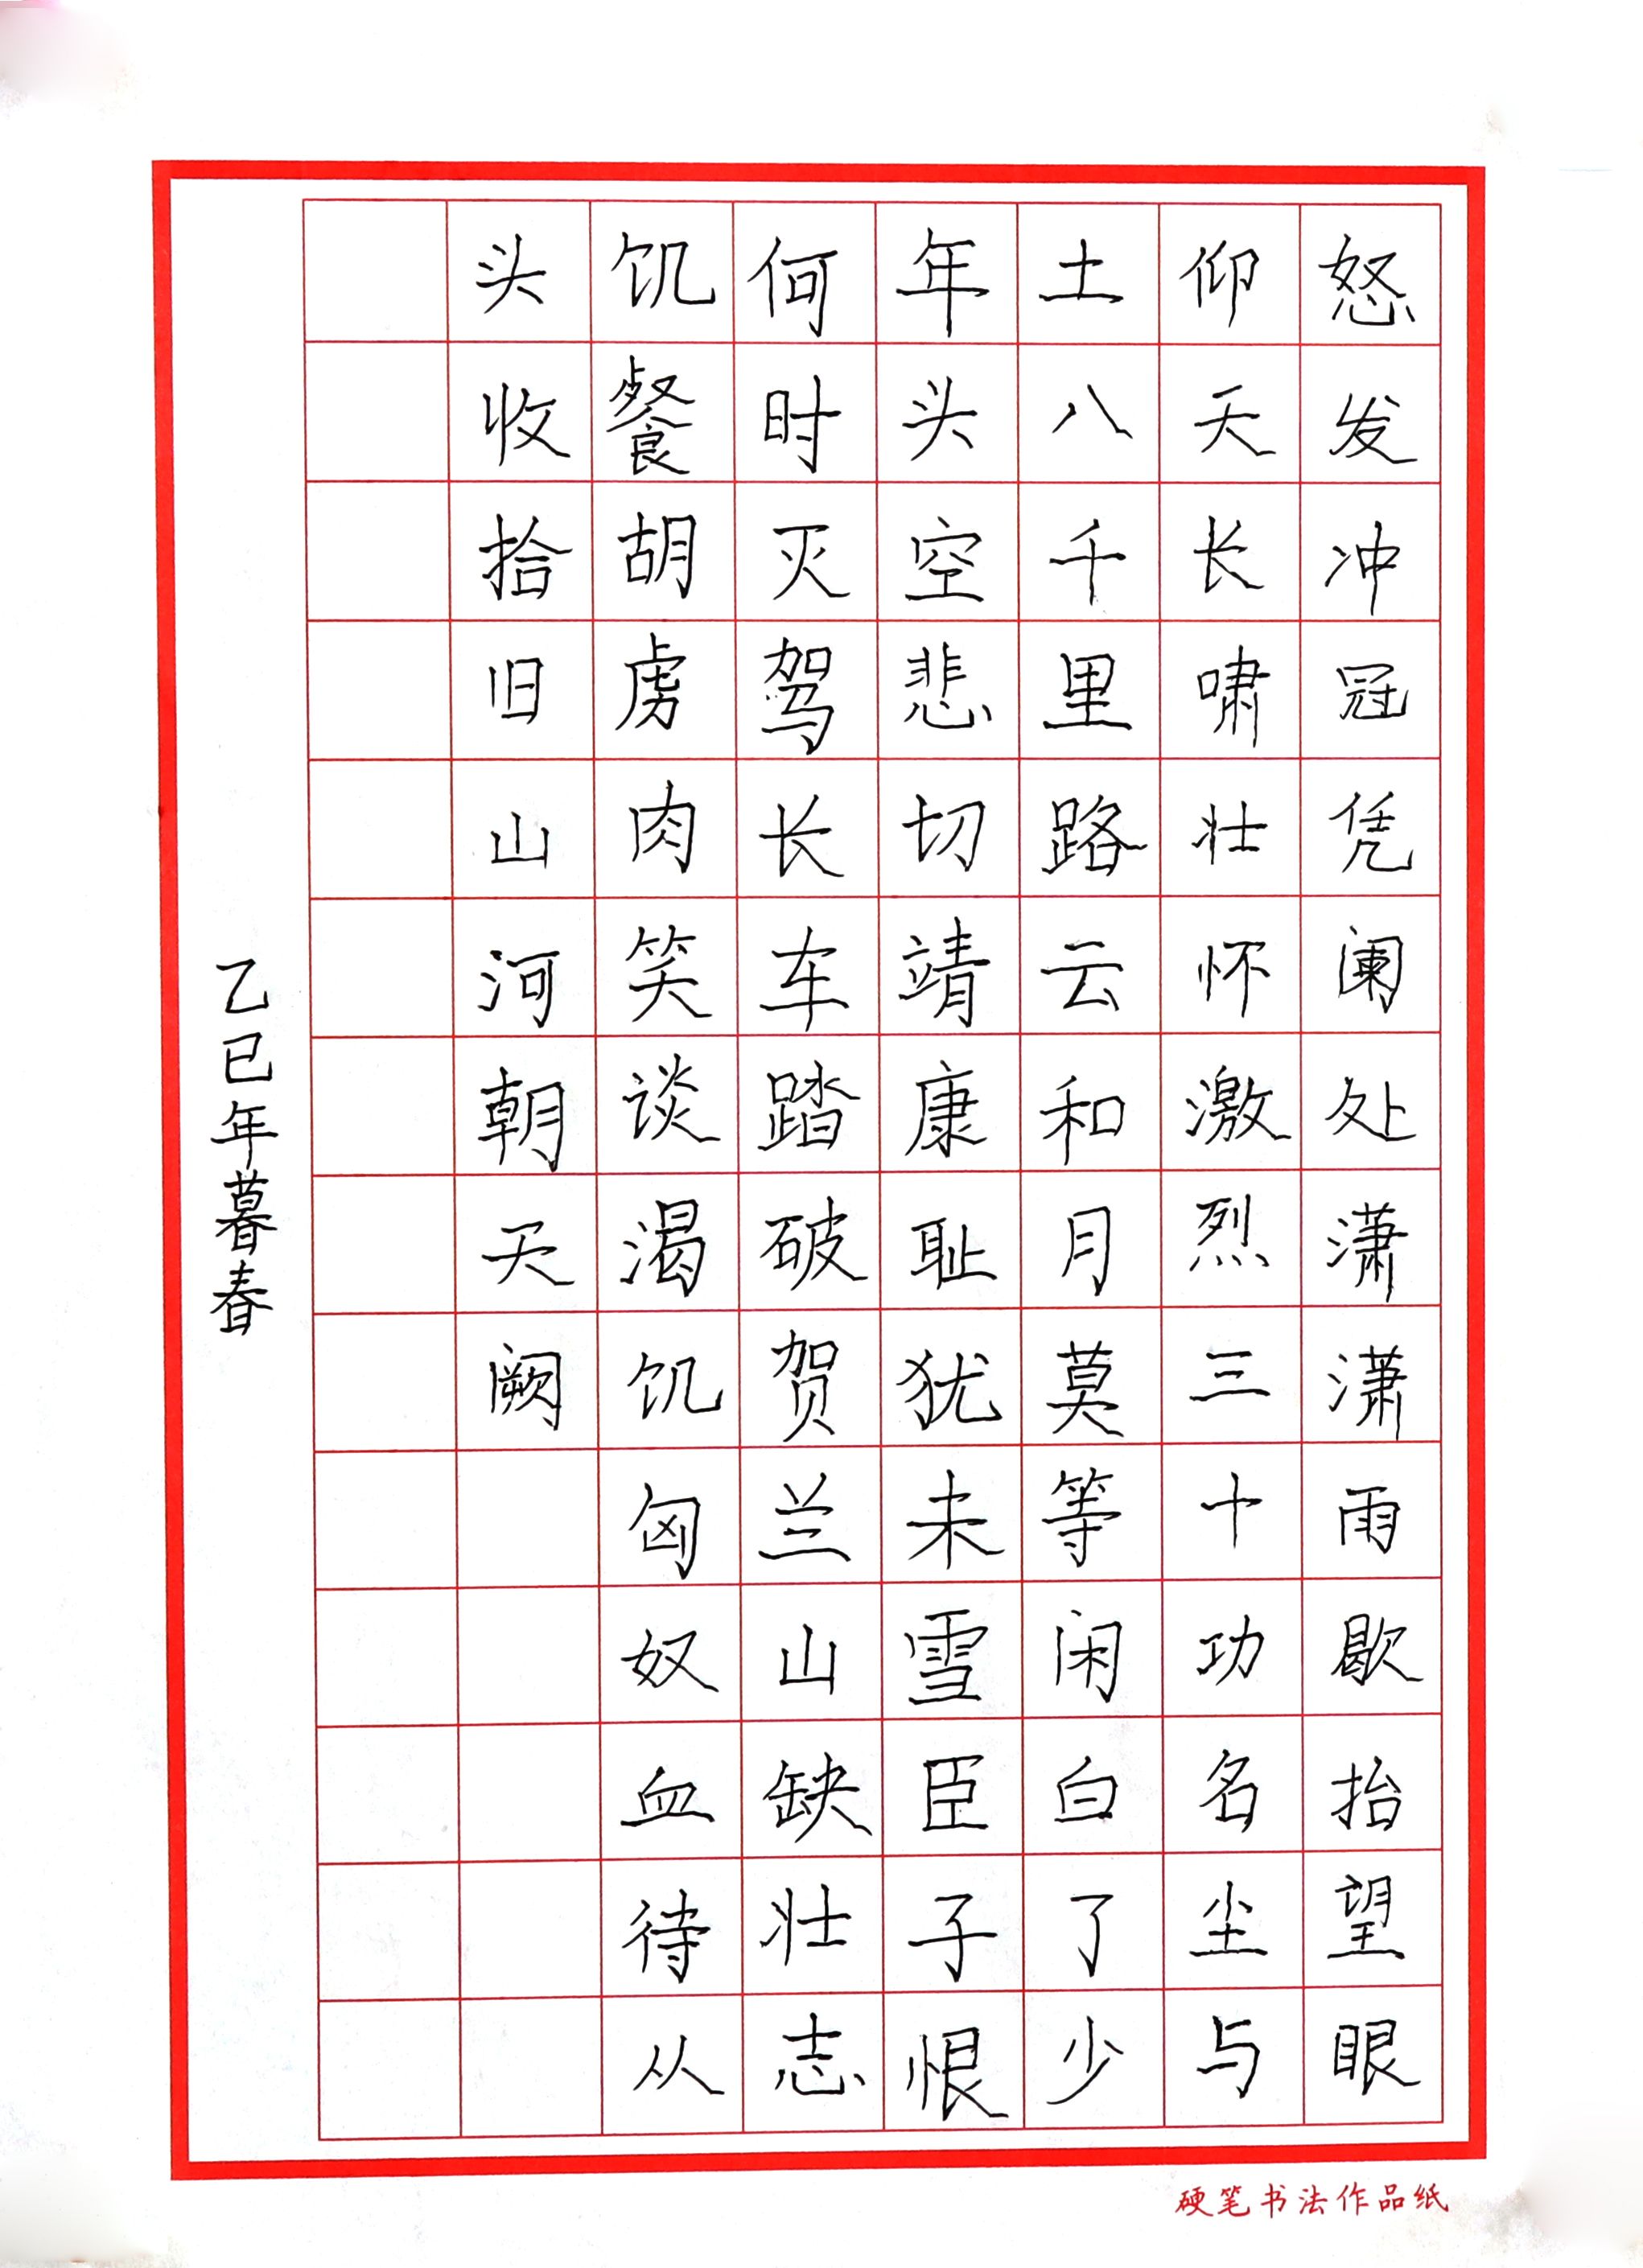 怒发冲冠凭阑处潇潇雨歇抬望眼
仰天长啸壮怀激烈三十功名尘与
土八千里路云和月莫等闲白了少
年头空悲切靖康耻犹未雪臣子恨
何时灭驾长车踏破贺兰山缺壮志
饥餐胡虏肉笑谈渴饥匈奴血待从
头收拾旧山河朝天阙
乙巳年暮春
硬笔书法作品纸